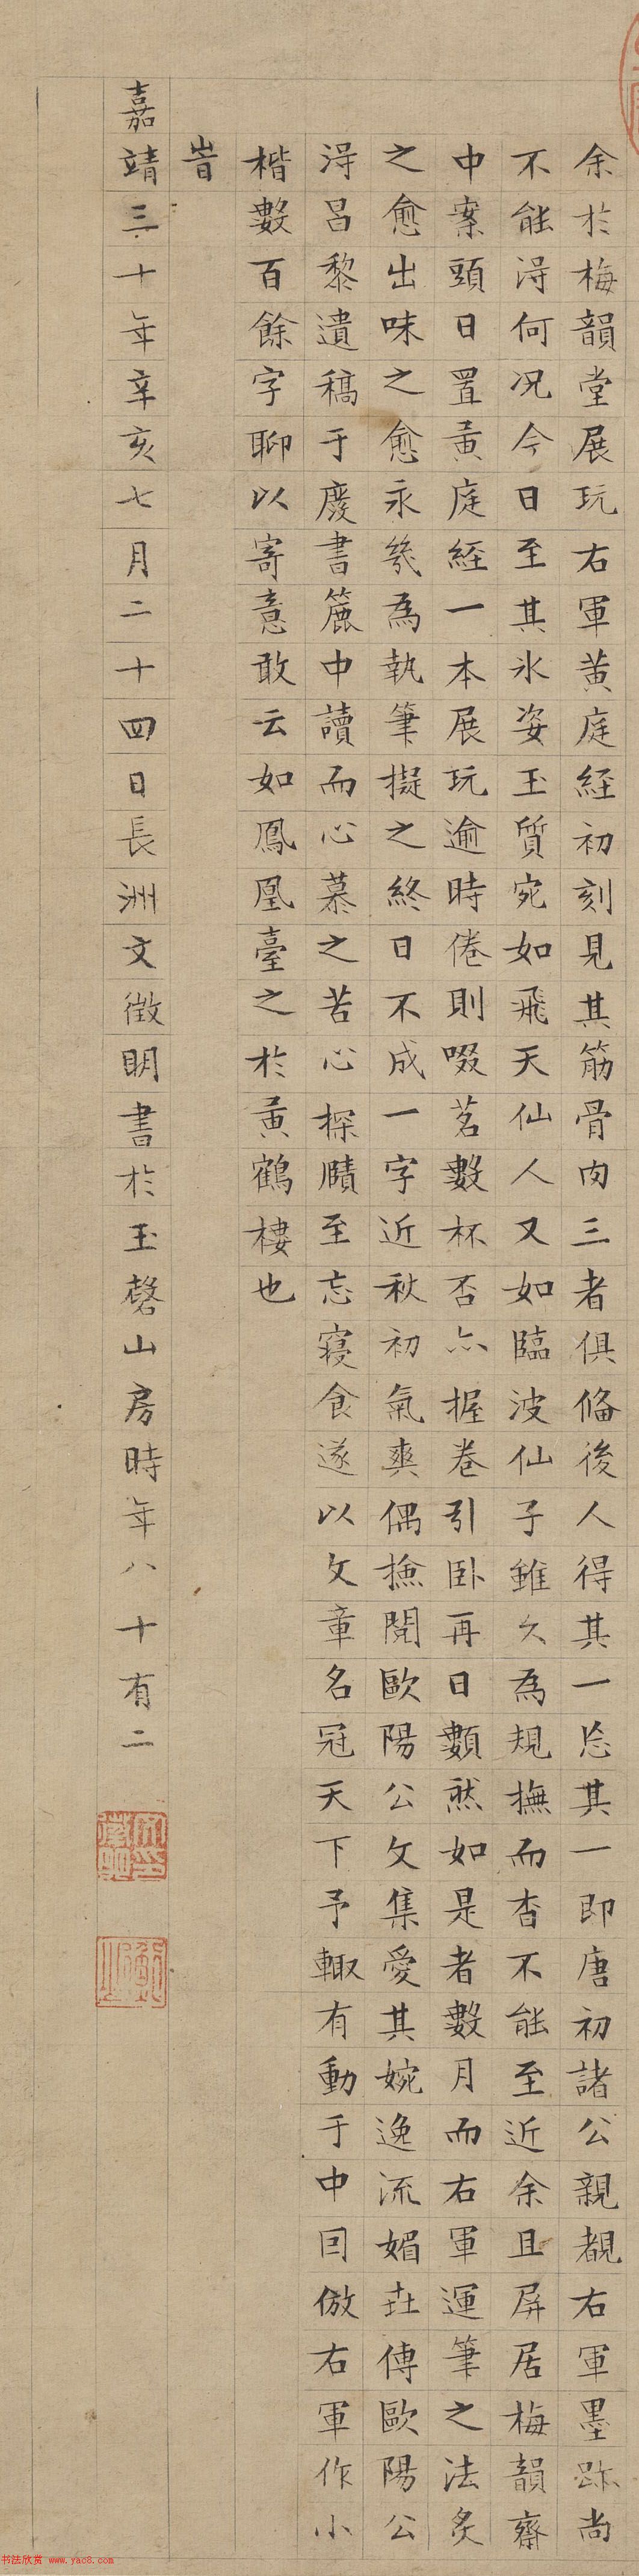 余於梅韻堂展玩右軍黃庭經初刻見其筋骨肉三者俱備後人得其一忘其一即唐初諸公親覩右軍墨跡尚
不能淂何况今日至其氷姿玉質宛如飛天仙人又如臨波仙子雖久為規撫而杳不能至近余且屏居梅韻齋
中案頭日置黃庭經一本展玩逾時倦則啜茗數杯否亦握卷引卧再日數然如是者數月而右軍運筆之法炙
之愈出味之愈永幾為執筆擬之終日不成一字近秋初氣爽偶撿閱歐陽公文集愛其婉逸流媚世傳歐陽公
淂昌黎遺稿于廢書簏中讀而心慕之苦心探賾至忘寢食遂以文章名冠天下予輙有動于中回倣右軍作小
楷數百餘字聊以寄意敢云如鳳凰臺之於黃鶴樓也
旹
嘉靖三十年辛亥七月二十四日長洲文徵明書於玉磬山房時年八十有二
书法欣赏 www.yac8.com